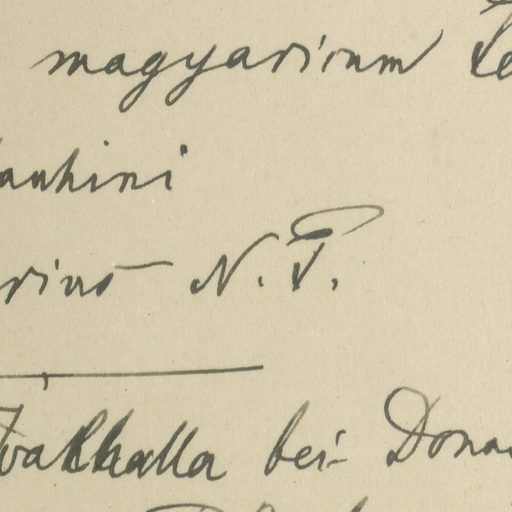 magyarirum
auhini
rius – N. P.
Walhalla bei Dona